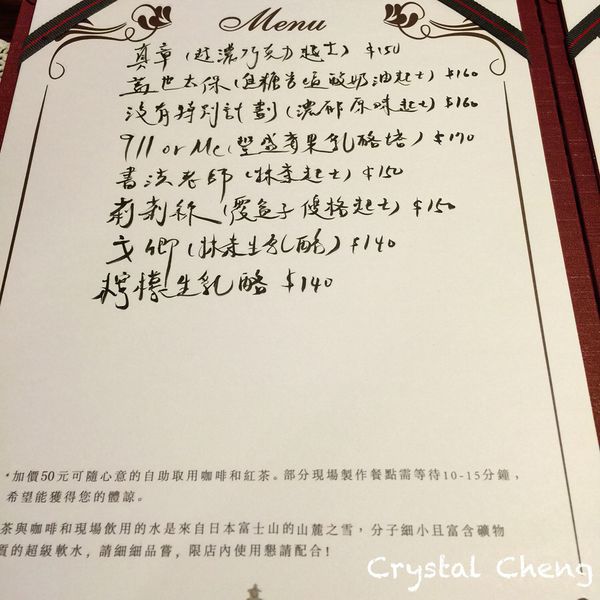 Menu
真章(超濃巧克力起士) $150
蓋世太保(焦糖香頌酸奶油起士) $160
沒有特別計劃(濃郁原味起士) $160
911 or Me(豐盛青果乳酪塔) $170
書法老師(抹茶起士) $150
莉莉絲(覆盆子優格起士) $150
文卿(抹茶生乳酪) $140
檸檬生乳酪 $140
*加價50元可隨心意的自助取用咖啡和紅茶。部分現場製作餐點需等待10-15分鐘,
希望能獲得您的體諒。
茶與咖啡和現場飲用的水是來自日本富士山的山麓之雪,分子細小且富含礦物
質的超級軟水,請細細品嘗,限店內使用懇請配合!
Crystal Cheng